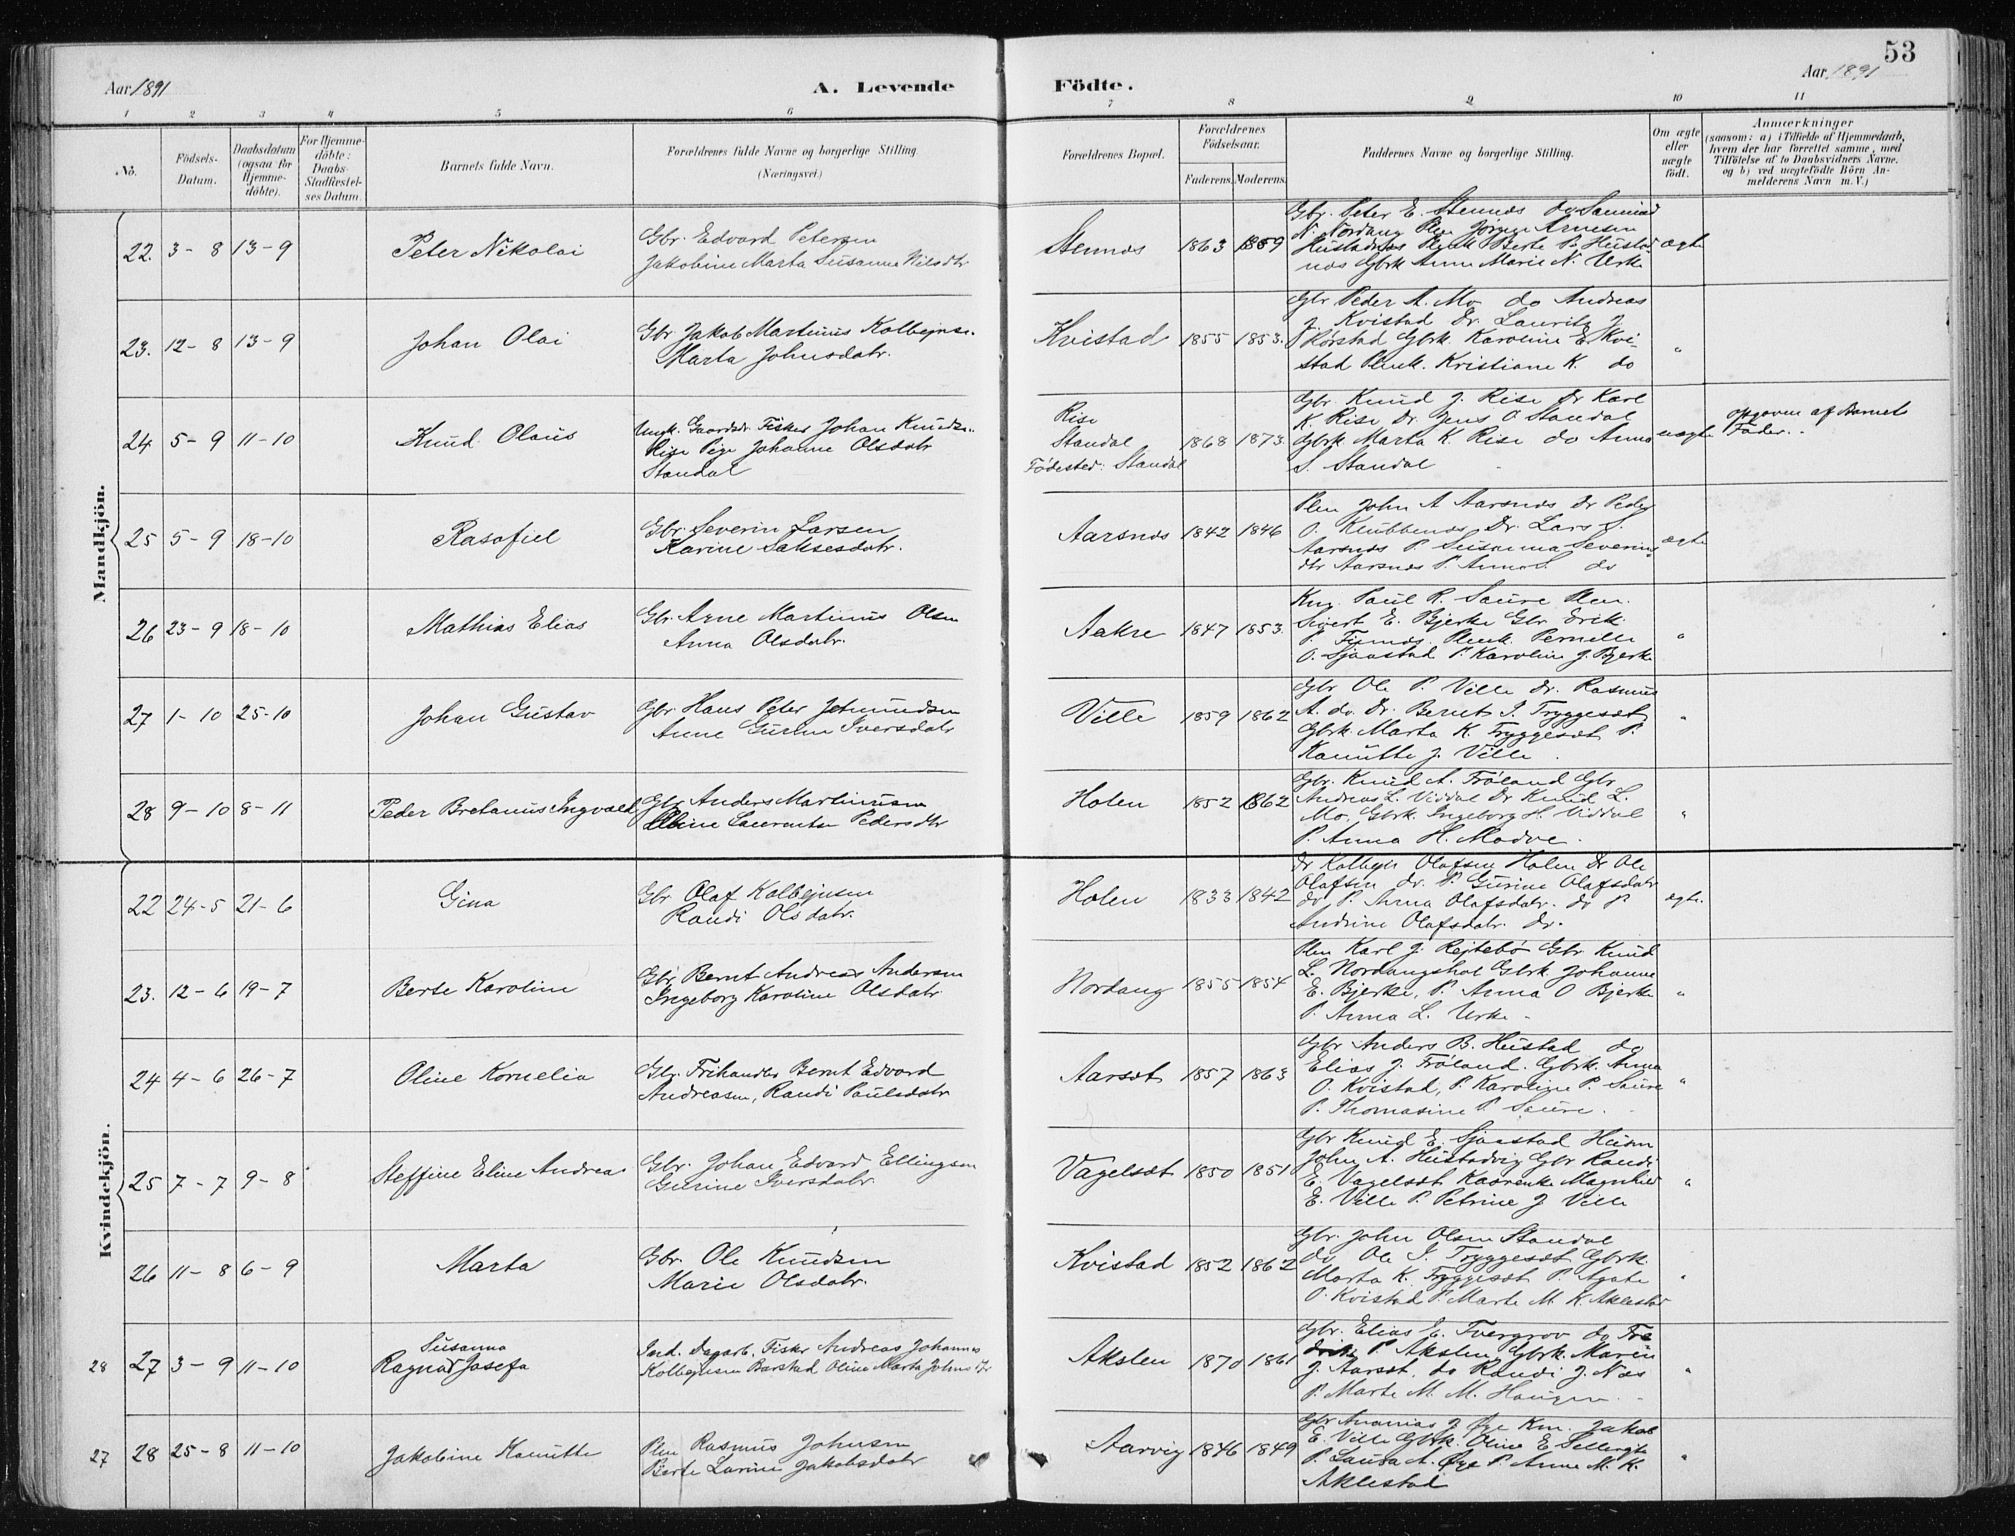 53
Aar 1891
A. Levende
Födte.
Aar 1891
1 2 3 4 5 6 7 8 9 10 11
No.
Födsels-Datum.
Daabsdatum (ogsaa for Hjemme-döbte).
For Hjemme-döbte: Daabs-Stadfæstel-ses Datum.
Barnets fulde Navn.
Forældrenes fulde Navne og borgerlige Stilling. (Næringsvei.)
Forældrenes Bopæl.
Forældrenes Födselsaar.
Faderens. Moderens.
Faddernes Navne og borgerlige Stilling.
Om ægte eller uægte födt.
Anmærkninger (saasom: a) i Tilfælde af Hjemmedaab, hvem der har forrettet samme, med Tilföielse af to Daabsvidners Navne. og b) ved uægtefödte Börn An-melderens Navn m. V.)
Mandkjön.
22. 3-8 13-9 Peter Nikolai
Gbr. Edvard Petersen
Jakobine Marta Susanne Nilsdtr
Stennes 1863 1859
Gbr. Peter E. Stennes do
N. Nordang Plen Jörgen Arnesen
Hustadnes Plenk Berte P. Hustad
nes Gbrk Anne Marie N. Urke
ægte
23. 12-8 13-9 Johan Olai
Gbr Jakob Martinus Kolbejns.
Marta Johnsdatr.
Kvistad 1855 1853.
Gbr Peder A. Mo do Andreas
J. Kvistad Dr. Laurits J.
Skorstad Gbrk Karoline E. Kvi-
stad Plenk. Kristiane K. do
"
24 5-9 11-10 Knud Olaus
Ungk. Gaardsdr. Fisker Johan Knudsn.
Rise Pige Johanne Olsdatr
Standal
Rise
Standal
Födested: Standal
1868 1873.
Gbr Knud J. Rise Dr Karl
K. Rise Dr. Jens O Standal
Gbrk Marta K. Rise do Anna
S. Standal
uægte
opgiven af Barnets
Fader.
25 5-9 18-10 Rasofiel
Gbr. Severin Larsen
Karine Saksesdatr.
Aarsnes 1842 1846
Plen John A Aarsnes Dr Peder
O. Knubbenes Dr. Lars S.
Aarsnes P. Susanna Severins
dtr Aarsnes P. Anna S. do
ægte
26 23-9 18-10 Mathias Elias
Gbr. Arne Martinus Olsen
Anna Olsdatr.
Aakre 1847 1853.
Paul P. Saure Plen.
Sivert E. Bjerke Gbr Erik
P. Finnes. Plenk. Pernelle
O. Sjaastad P. Karoline J. Bjerke
"
27 1-10 25-10 Johan Gustav
Gbr Hans Peter Jetmundsen
Anne Gurine Iversdatr
Ville 1859 1862
Gbr Ole P. Ville Dr. Rasmus
A. do Dr. Bernt I. Tryggeset
Gbrk Marta K. Tryggeset P.
Kanutte J. Ville.
"
28 9-10 8-11 Peder Bretanus Ingvald
Gbr Anders Martinusen
Laurentse Pedersdtr
Holen 1852 1862
Gbr. Knud A. Fröland Gbr
Andreas L. Viddal Dr Knud L.
Mo. Gbrk. Ingeborg H. Viddal
P. Anna H. Madve.
"
Kvindekjön.
22 24-5 21-6 Gina
Gbr. Olaf Kolbejnsen
Randi Olsdatr.
Holen 1833 1842
Dr Kolbejn Olafsen Holen Dr Ole
Olafsen do. P. Gurine Olafsdatr
do P. Anna Olafsdatr. do P
Andrine Olafsdatr. do.
ægte.
23. 12-6 19-7 Berte Karoline
Gbr. Bernt Andreas Andersen
Ingeborg Karoline Olsdatr
Nordang 1855 1854
Plen Karl J. Rejtebö Gbr Knud
L. Nordangshol Gbrk. Johanne
E. Bjerke, P. Anna O Bjerke
P. Anna L. Urke -
"
24 4-6 26-7 Oline Kornelia
Gbr. Frihandler Bernt Edvard
Andreasen, Randi Paulsdatr
Aarset 1857 1863
Gbr Anders B. Hustad do
Elias J. Fröland. Gbrk. Anna
O. Kvistad, P. Karoline P. Saure
P. Thomasine P Saure.
"
25 7-7 9-8 Steffine Eline Andrea
Gbr. Johan Edvard Ellingsen
Gurine Iversdatr.
Vagelset 1850 1851
Gbr Knud E. Sjaastad
John A. Hustadvig Gbr Randi
E. Vagelset Magnhild
E. Ville P. Petrine J Ville
"
26 11-8 6-9 Marta
Gbr. Ole Knudsen
Marie Olsdatr.
Kvistad 1852 1862
Gbr. John Olsen Standal
do Ole I. Tryggeset Gbrk
Marta K. Tryggeset P. Agate
O. Kvistad P. Marte M. K. Aklestad
"
28 27 3-9 11-10 Susanna
Ragna Josefa
Ind. Dagarb. Fisker Andreas Johannes
Kolbejnsen Barstad Oline Marta Johnsdtr
Akslen 1870 1861
Gbr. Elias E. Tvergrov do Fre
drik P Akslen Gbrk. Maren
J. Aarset. do Randi J. Nes
P. Marte M. M. Haugen.
"
27 28 25-8 11-10 Jakobine Kanutte
Plen Rasmus Johnsen
Berte Larine Jakobsdatr
Aarvig 1846 1849
Gbr Ananias J. Öye Km. Jakob
E. Ville Gbrk. Oline E.
P. Laura A. Öye P. Anne M. K.
Aklestad
"